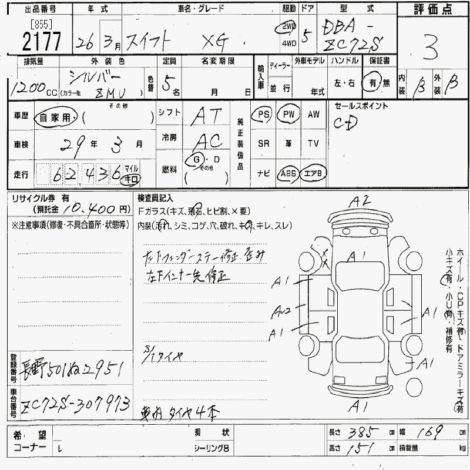 出品番号 年式 車名・グレード 駆動 ドア 型式 評価点
[855]
2177 26年 3月 スイフト XG 2WD 4WD 5 DBA-ZC72S 3
排気量 外装色 色替 定員 名変期限 輸入車 ディーラー 外車モデル ハンドル 保証書 内装 外装
1200CC シルバー (カラーNo. ZMU) 5 月 日 並行 年 左・右 有・無 B B
車歴 自家用・ (その他) シフト AT 純正装備品 PS PW AW セールスポイント
車検 29年 3月 冷房 AC SR 革 TV CD
走行 62436 マイル キロ 燃料 G・D その他 ナビ ABS エアB
リサイクル券 有
(預託金 10,400円)
※注意事項(修復・不具合箇所・状態等)
検査員記入
Fガラス(キズ、飛石、ヒビ割、×要)
内装(汚れ、シミ、コゲ、穴、破れ、キレ、キレ、スレ)
左インナー先 修正
S/タイヤ
タイヤ4本
A2
A1
A1
A1
A1
A1
A1
ホイール・CPキズ有・ドアミラーキズ(有)
小キズ(有)・小U(有)・補修有
登録番号 長野501ね2951
車台番号 ZC72S-307973
希望コーナー レ
現状
シーリングB
長さ 385cm 幅 169cm
高さ 151cm 積載量 kg